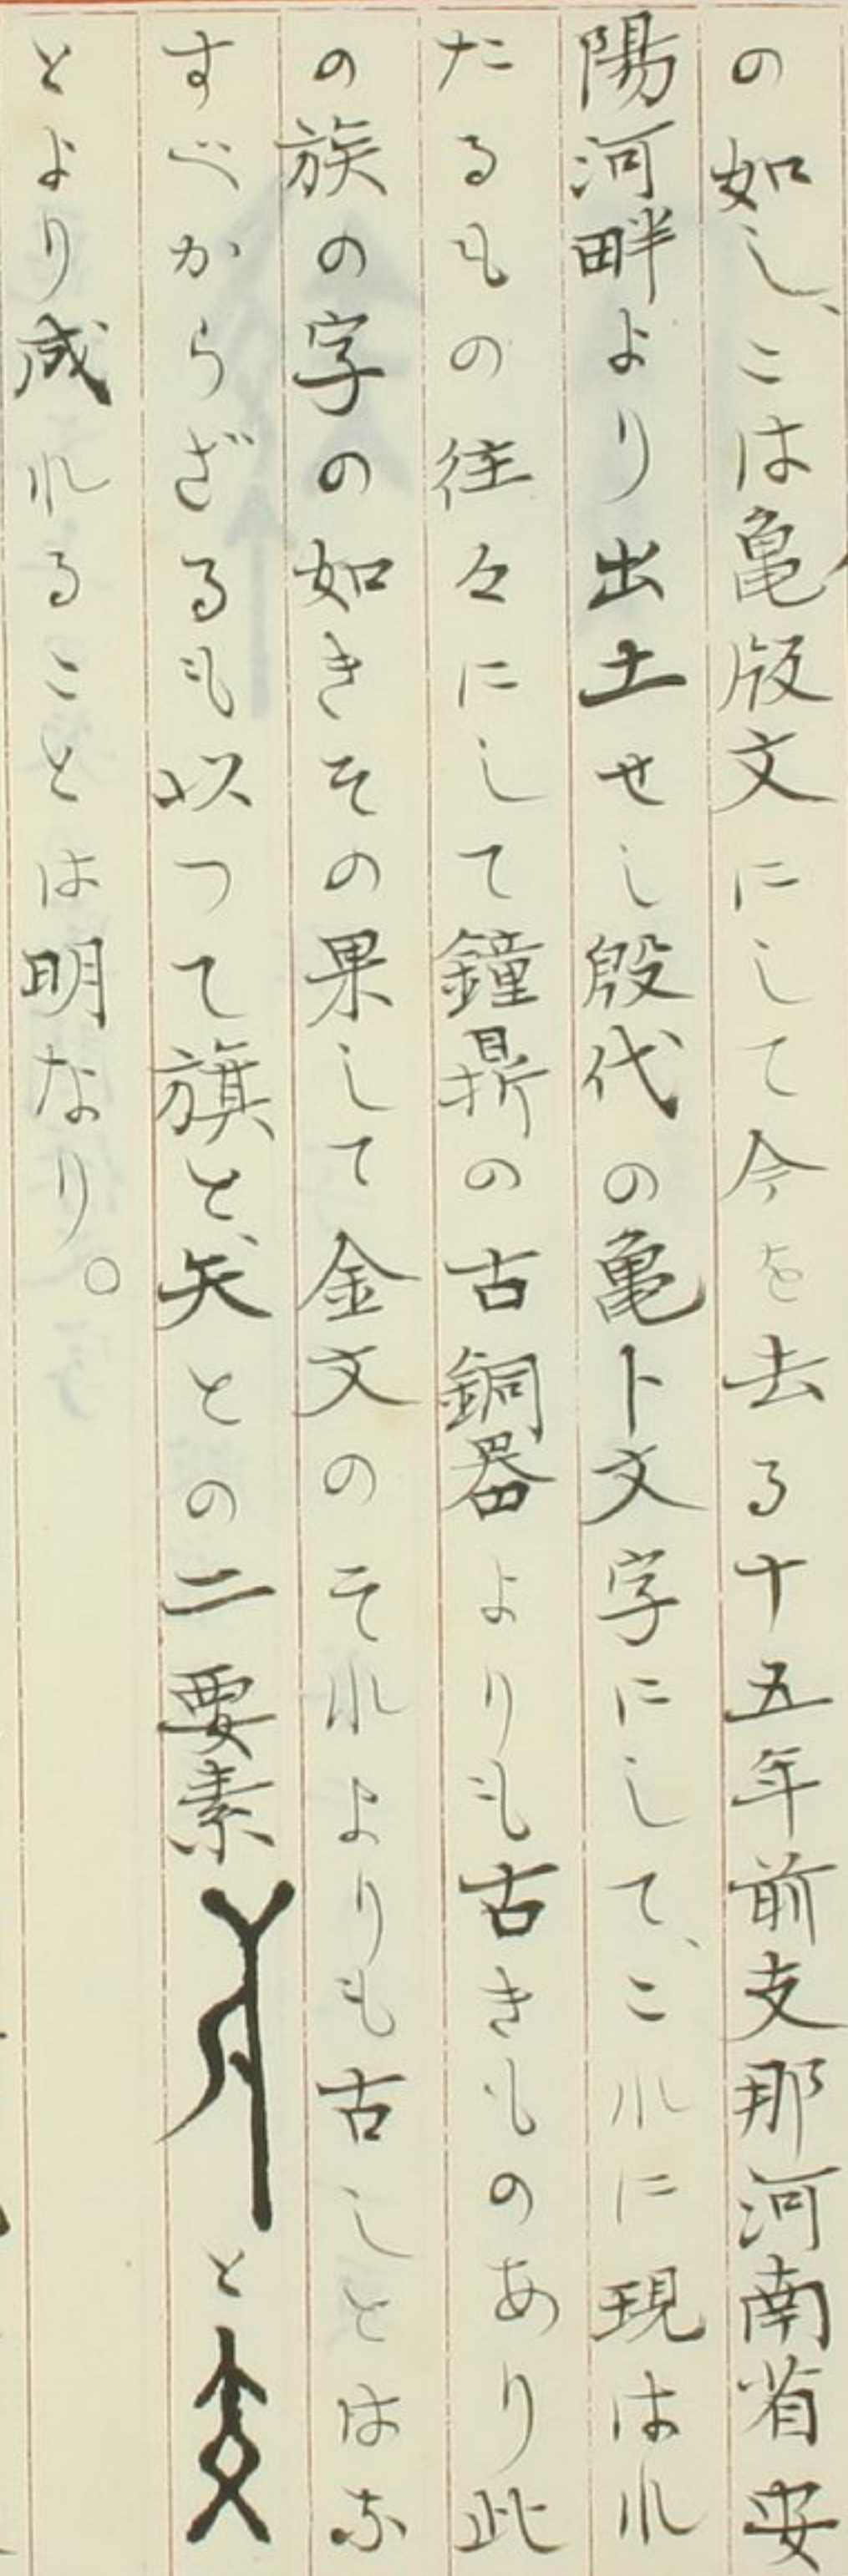 の如し、こは亀版文にして今を去る十五年前支那河南省安
陽河畔より出土せし殷代の亀卜文字にして、これに現はれ
たるもの往々にして鐘鼎の古銅器よりも古きものあり此
の族の字の如きその果して金文のそれよりも古しとはな
すべからざるも以つて旗と、矢との二要素 と
とより成れることは明なり。